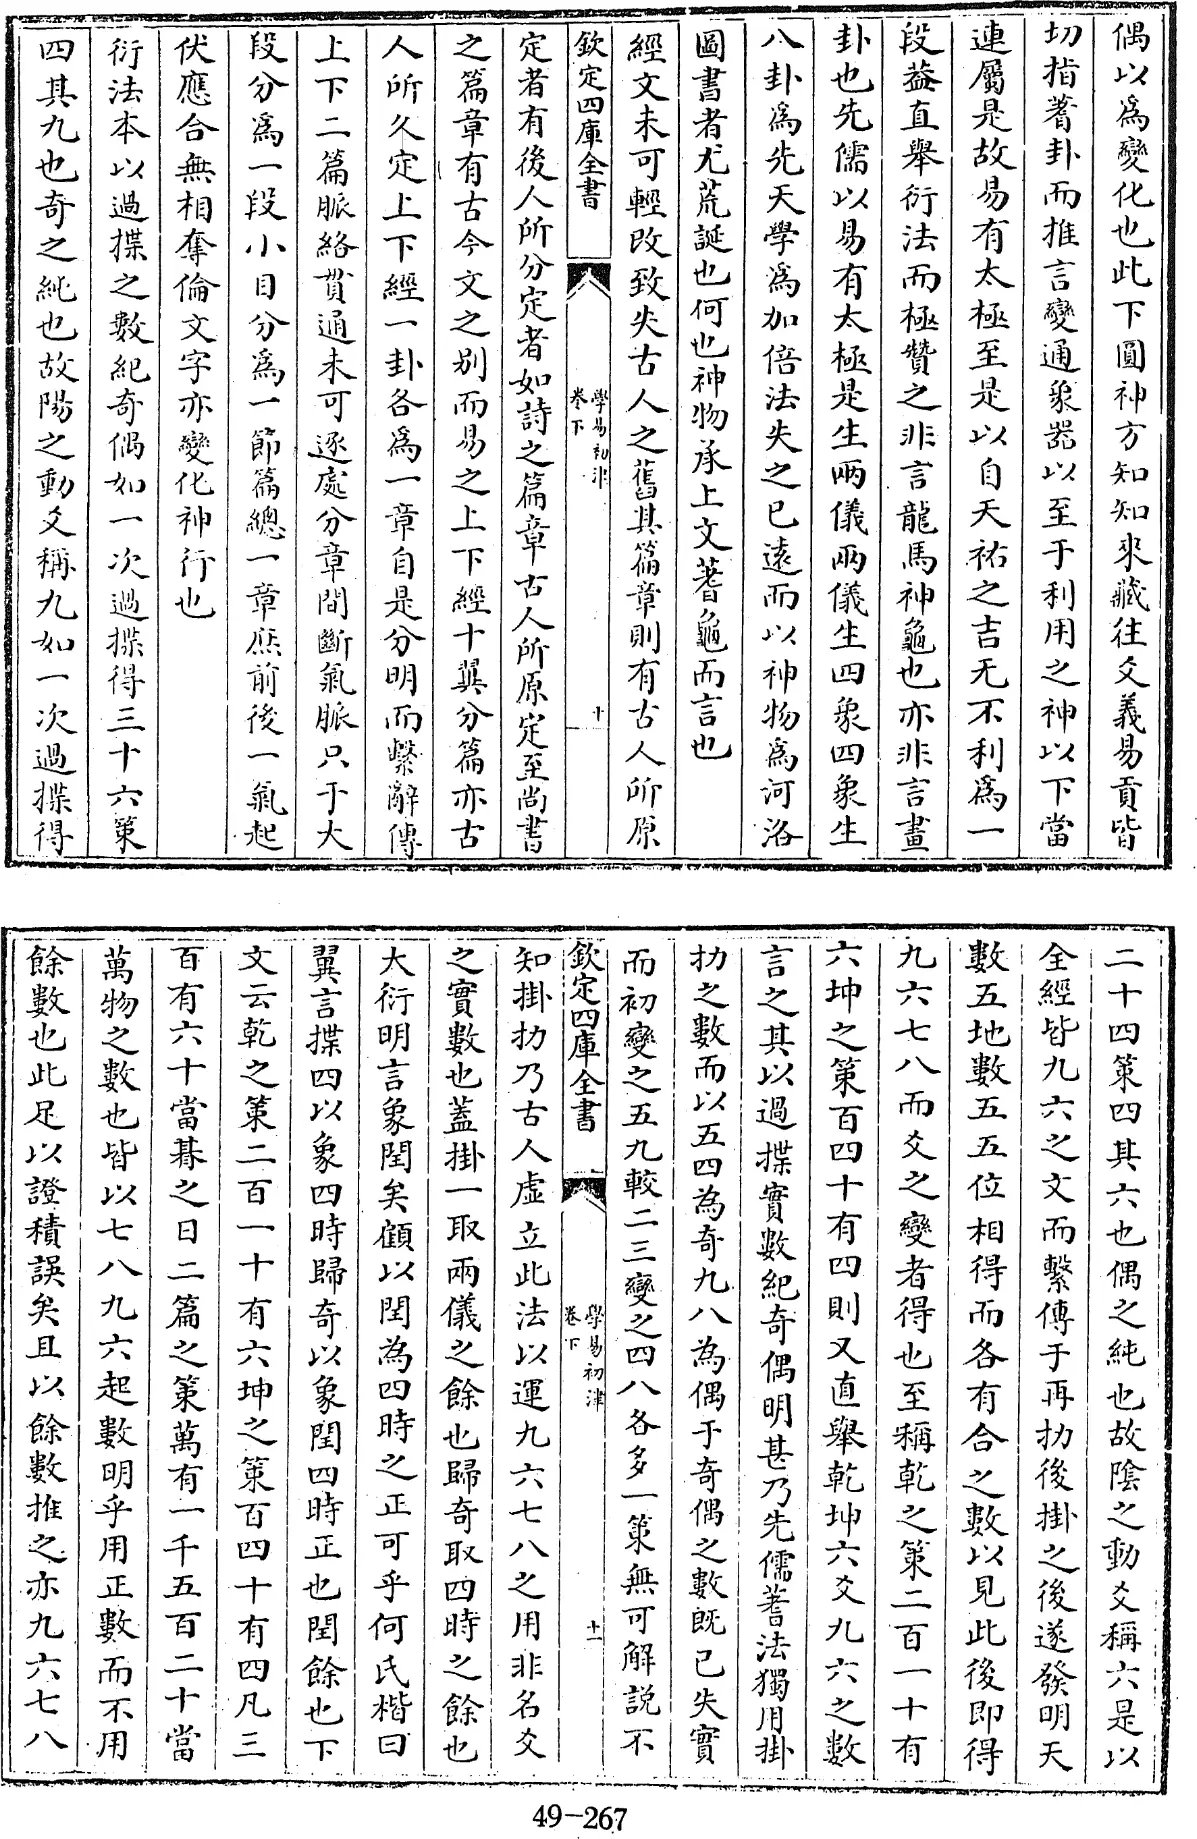 偶以為變化也此下圓神方知知來藏往爻義易貢皆
切指蓍卦而推言變通象器以至于利用之神以下當
連屬是故易有太極至是以自天祐之吉无不利為一
段葢直舉衍法而極贊之非言龍馬神龜也亦非言畫
卦也先儒以易有太極是生兩儀兩儀生四象四象生
八卦為先天學為加倍法失之已遠而以神物為河洛
圖書者尤荒誕也何也神物承上文蓍龜而言也
經文未可輕改致失古人之舊其篇章則有古人所原
欽定四庫全書
學易初津
卷下
十
定者有後人所分定者如詩之篇章古人所原定至尚書
之篇章有古今文之别而易之上下經十翼分篇亦古
人所久定上下經一卦各為一章自是分明而繫辭傳
上下二篇脈絡貫通未可逐處分章間斷氣脈只于大
段分為一段小目分為一節篇總一章庶前後一氣起
伏應合無相奪倫文字亦變化神行也
衍法本以過揲之數紀奇偶如一次過揲得三十六策
四其九也奇之純也故陽之動爻稱九如一次過揲得
二十四策四其六也偶之純也故陰之動爻稱六是以
全經皆九六之文而繫傳于再扐後掛之後遂發明天
數五地數五五位相得而各有合之數以見此後即得
九六七八而爻之變者得也至稱乾之策二百一十有
六坤之策百四十有四則又直舉乾坤六爻九六之數
言之其以過揲實數紀奇偶明甚乃先儒蓍法獨用掛
扐之數而以五四為奇九八為偶于奇偶之數既已失實
而初變之五九較二三變之四八各多一策無可解說不
欽定四庫全書
學易初津
卷下
十一
知掛扐乃古人虛立此法以運九六七八之用非名爻
之實數也蓋掛一取兩儀之餘也歸奇取四時之餘也
大衍明言象閏矣顧以閏為四時之正可乎何氏楷曰
翼言揲四以象四時歸奇以象閏四時正也閏餘也下
文云乾之策二百一十有六坤之策百四十有四凡三
百有六十當朞之日二篇之策萬有一千五百二十當
萬物之數也皆以七八九六起數明乎用正數而不用
餘數也此足以證積誤矣且以餘數推之亦九六七八
49-267